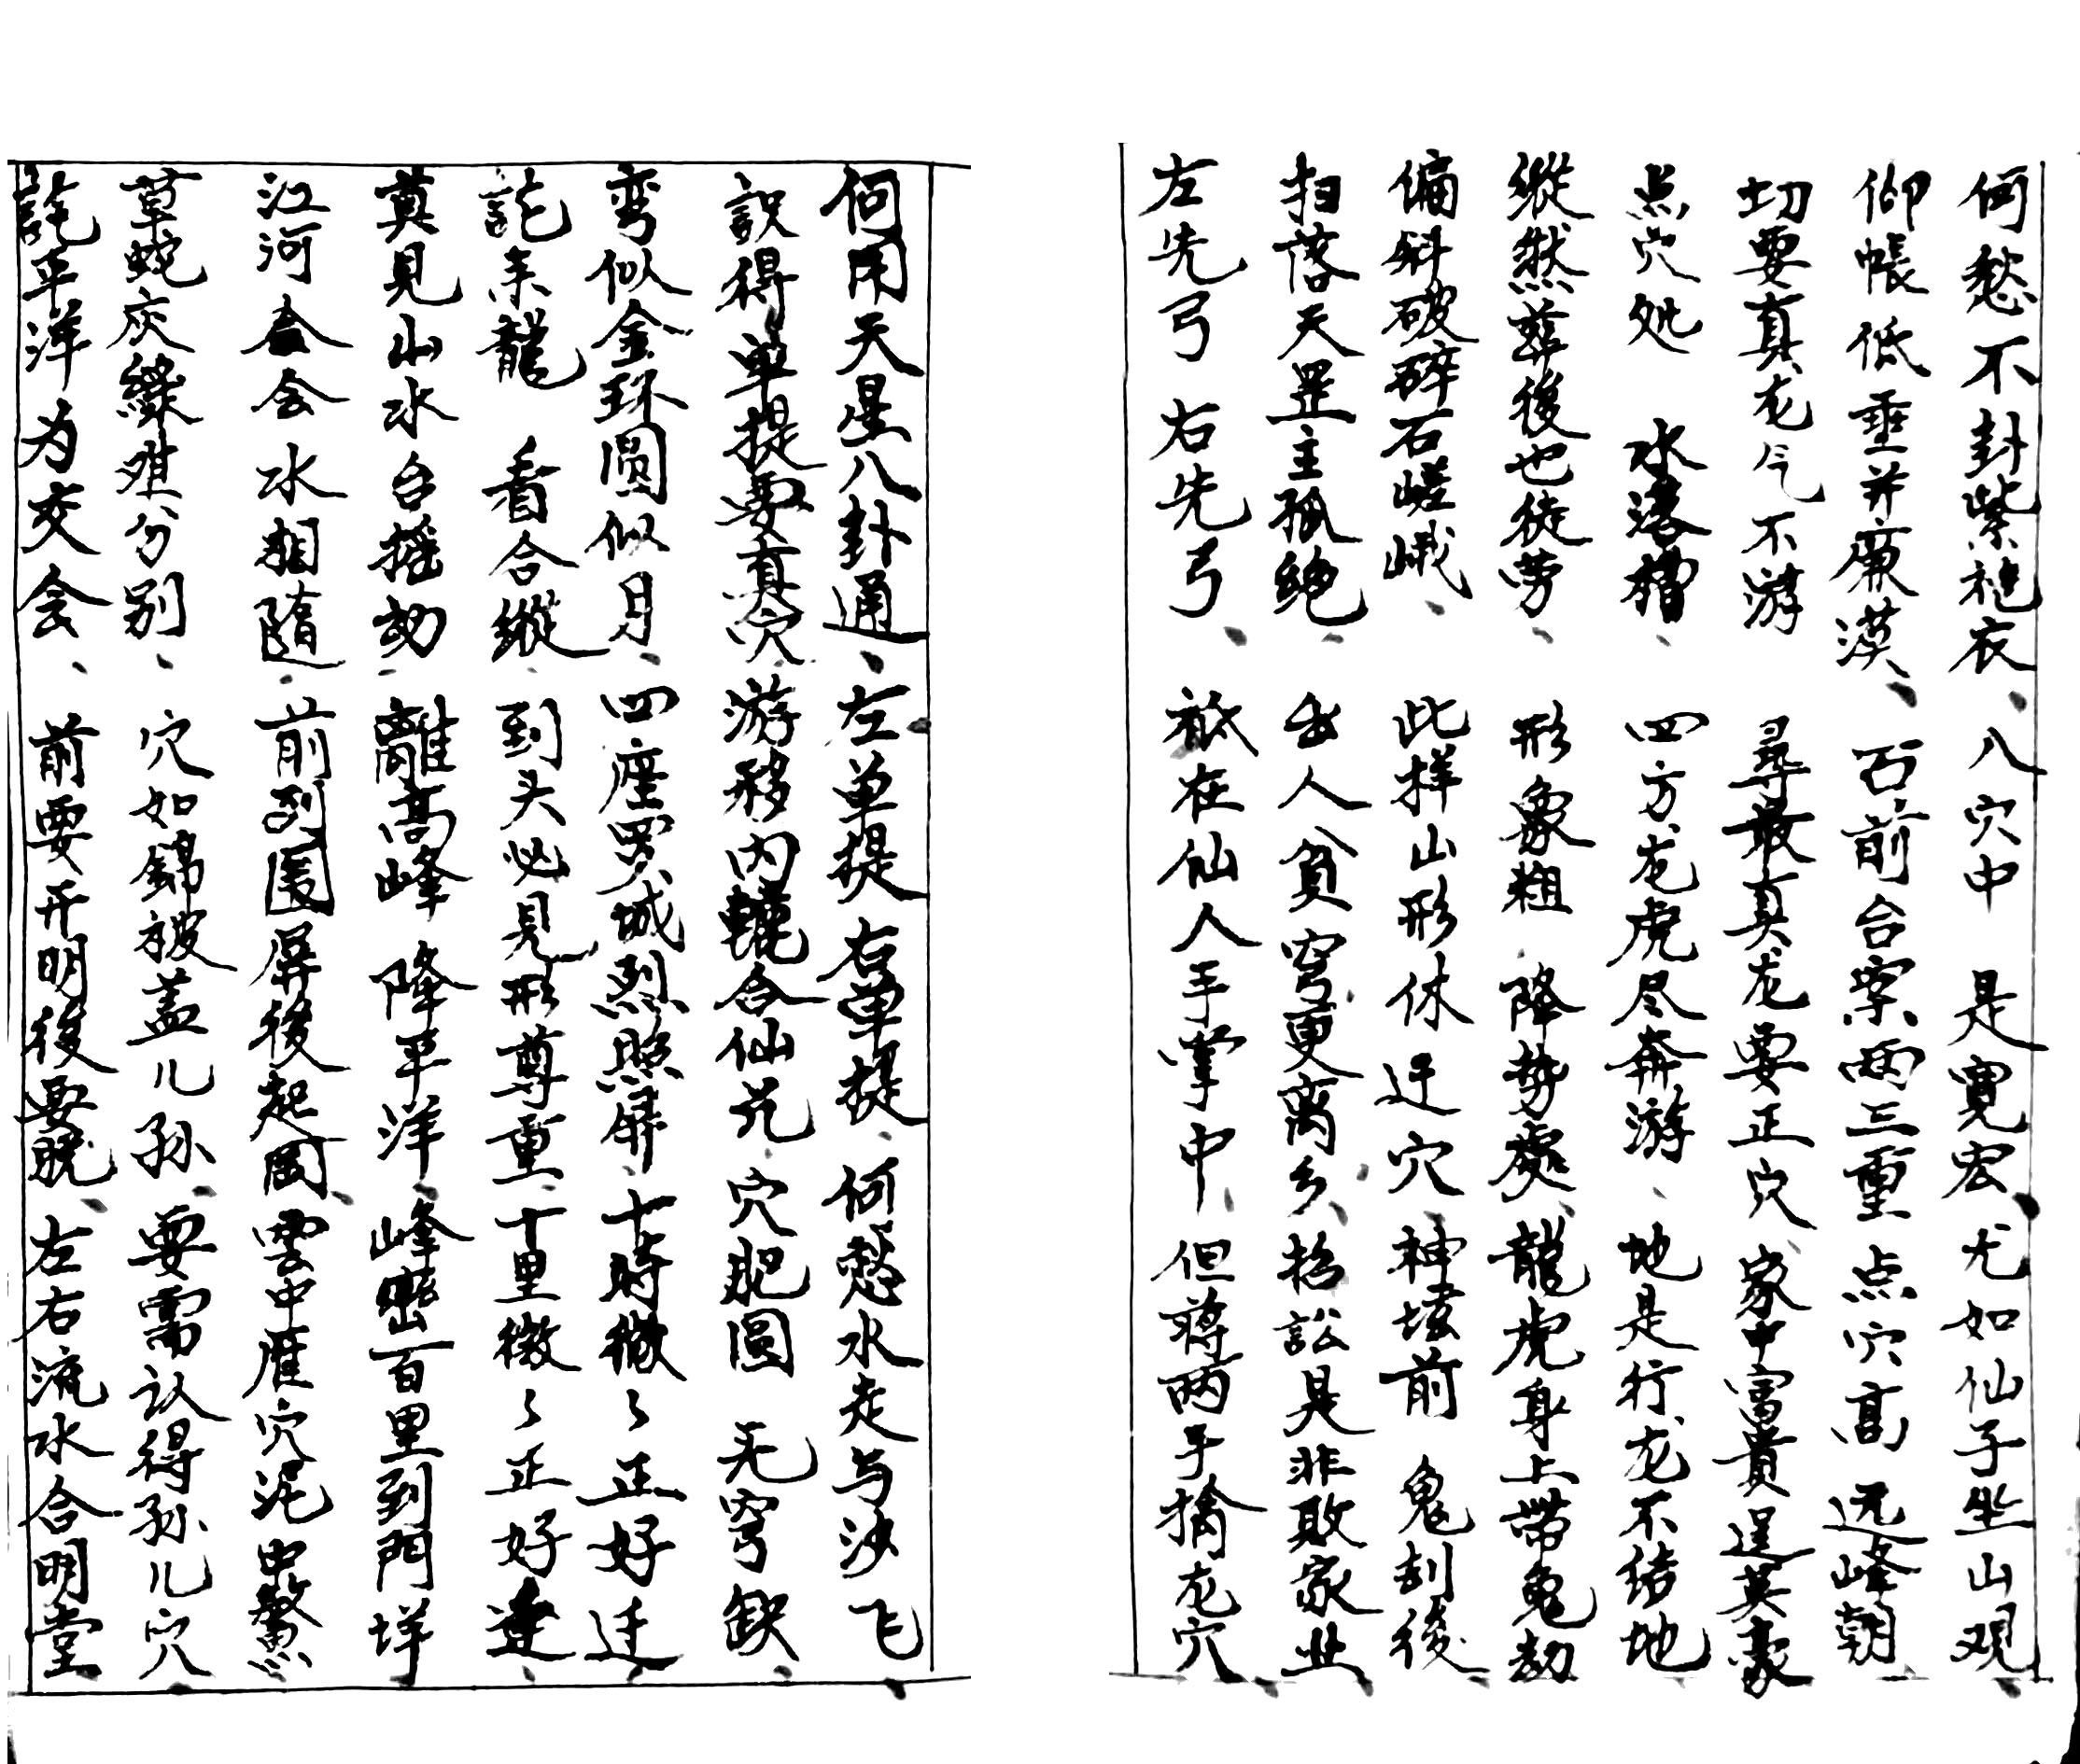 何愁不封紫袍衣、八穴中 是寬宏、尤如仙子坐山观、
仰帳低垂并廉漠、石前台案兩三重 点穴高 远峰朝、
切要真龙气不游 尋最真龙要正穴、家中富貴逞英豪
点穴处 水落槽、四方龙虎尽奔游、地是行龙不结地
縱然葬後也徒劳、形象粗 降势處、龍虎身上带鬼劫
偏斜破碎石嵯峨、此样山形休迁穴、神坛前 鬼刹後、
扫落天罡主孤绝、出人貧穷更离乡、招訟是非败家业、
左先弓 右先弓、祗在仙人手掌中、但蒋两手擒龙穴、
何用天星八卦通、左单提 右单提、何愁水走与沙飞、
訣得单提要真穴、游移内轆合仙花、穴肥圆 无穹缺、
弯似金环圆似月、四座罗城烈照屏、十時徽々正好迁、
詑来龍 看合縱、到头必见形尊重、十里徽々正好逢、
莫见山水台摇动、離高峰 降平洋、峰巒百里到門垟
江河会会水相随、前列围屏後起岡、雲中雁穴泥中鰲
草蛇灰綫难分别、穴如錦被盖儿孙、要需认得孙儿穴
詑平洋为交会、前要开明後要脱、左右流水合明堂